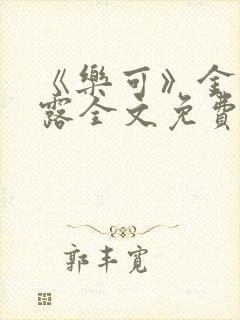 《樂可》金
露全文免費
郭丰寬